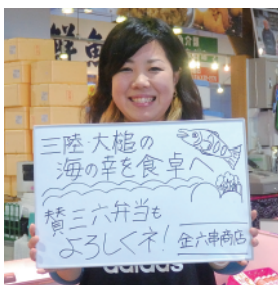 鮮魚
三陸・大槌の
海の幸を食卓へ
賛三六弁当も
よろしくネ!
金六串商店
adidas